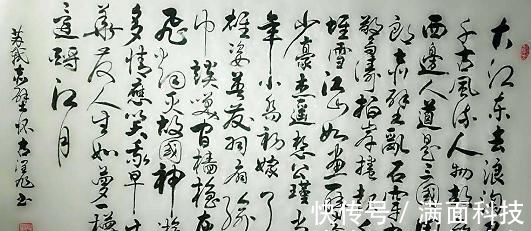 大江东去浪淘
千古风流人物故
西边人道是三國
郎赤壁乱石穿
惊涛拍岸捲起
堆雪江山如画一
少豪杰遥想公瑾当
年小乔初嫁了
雄姿英发羽扇纶
巾谈笑间樯橹灰
飞烟灭故國神游
多情应笑我早生
华发人生如梦一樽
还酹江月
苏轼赤壁怀古 书
快传号 / 满面科技